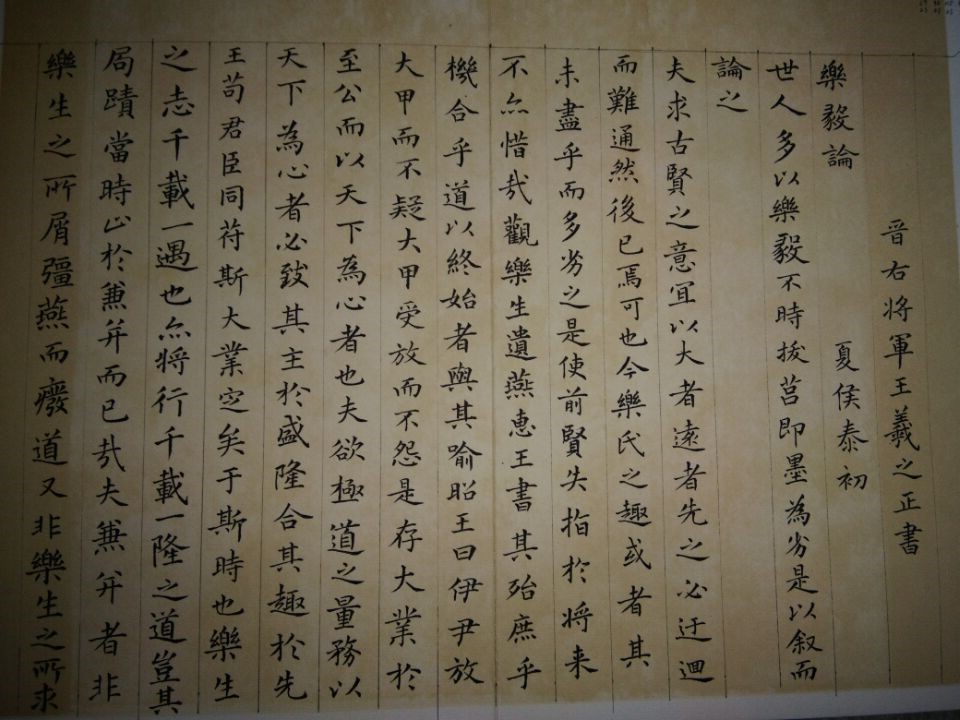 晋右将軍王羲之正書
樂毅論　夏侯泰初
世人多以樂毅不時拔莒即墨為劣是以叙而
論之
夫求古賢之意宜以大者遠者先之必迂迴
而難通然後已焉可也今樂氏之趣或者其
未盡乎而多劣之是使前賢失指於将来
不亦惜哉觀樂生遺燕惠王書其殆庶乎
機合乎道以終始者與其喻昭王曰伊尹放
大甲而不疑大甲受放而不怨是存大業於
至公而以天下為心者也夫欲極道之量務以
天下為心者必致其主於盛隆合其趣於先
王苟君臣同符斯大業定矣于斯時也樂生
之志千載一遇也亦将行千載一隆之道豈其
局蹟當時止於兼并而已哉夫兼并者非
樂生之所屑彊燕而癈道又非樂生之所求